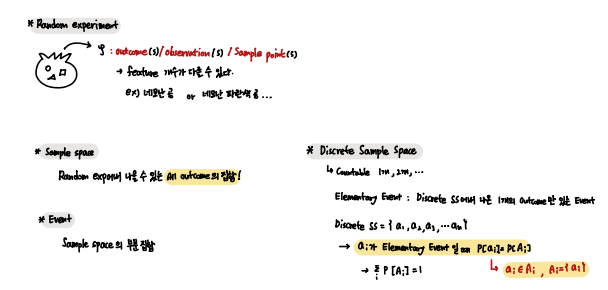 * Random experiment
ζ : outcome(s)/observation(s) / Sample point(s)
→ feature 개수가 다를 수 있다.
ex) 네모난 공 or 네모난 파란색 공...
* Sample space
Random exp에서 나올 수 있는 All outcome의 집합!
* Event
Sample space의 부분집합
* Discrete Sample Space
↳ Countable 1개, 2개, ...
Elementary Event : Discrete SS에서 나온 1개의 outcome만 있는 Event
Discrete SS = { a₁, a₂, a₃, ... aₙ }
→ aᵢ가 Elementary Event 일 때 P[aᵢ] = P[Aᵢ]
→ Σᵢ P[Aᵢ] = 1
↳ aᵢ ∈ Aᵢ , Aᵢ = {aᵢ}